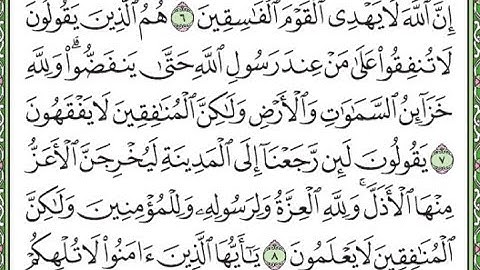 إِنَّ ٱللَّهَ لَا يَهْدِى ٱلْقَوْمَ ٱلْفَـٰسِقِينَ ٦ هُمُ ٱلَّذِينَ يَقُولُونَ
لَا تُنفِقُوا۟ عَلَىٰ مَنْ عِندَ رَسُولِ ٱللَّهِ حَتَّىٰ يَنفَضُّوا۟ ۗ وَلِلَّهِ
خَزَآئِنُ ٱلسَّمَـٰوَٰتِ وَٱلْأَرْضِ وَلَـٰكِنَّ ٱلْمُنَـٰفِقِينَ لَا يَفْقَهُونَ
٧ يَقُولُونَ لَئِن رَّجَعْنَآ إِلَى ٱلْمَدِينَةِ لَيُخْرِجَنَّ ٱلْأَعَزُّ
مِنْهَا ٱلْأَذَلَّ ۚ وَلِلَّهِ ٱلْعِزَّةُ وَلِرَسُولِهِۦ وَلِلْمُؤْمِنِينَ وَلَـٰكِنَّ
ٱلْمُنَـٰفِقِينَ لَا يَعْلَمُونَ ٨ يَـٰٓأَيُّهَا ٱلَّذِينَ ءَامَنُوا۟ لَا تُلْهِكُمْ